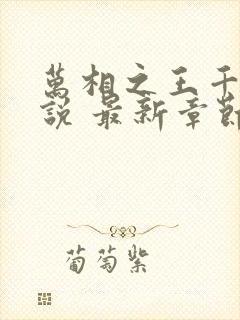 萬相之王千
說 最新章節
葡萄紫